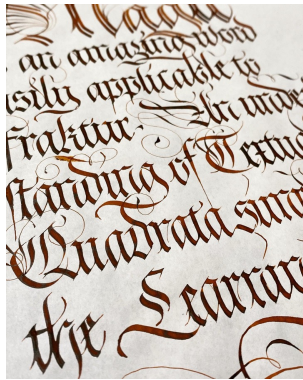 an amazing word
asily applicable to
fraktur. under
standing of Textu
Quadrata
the